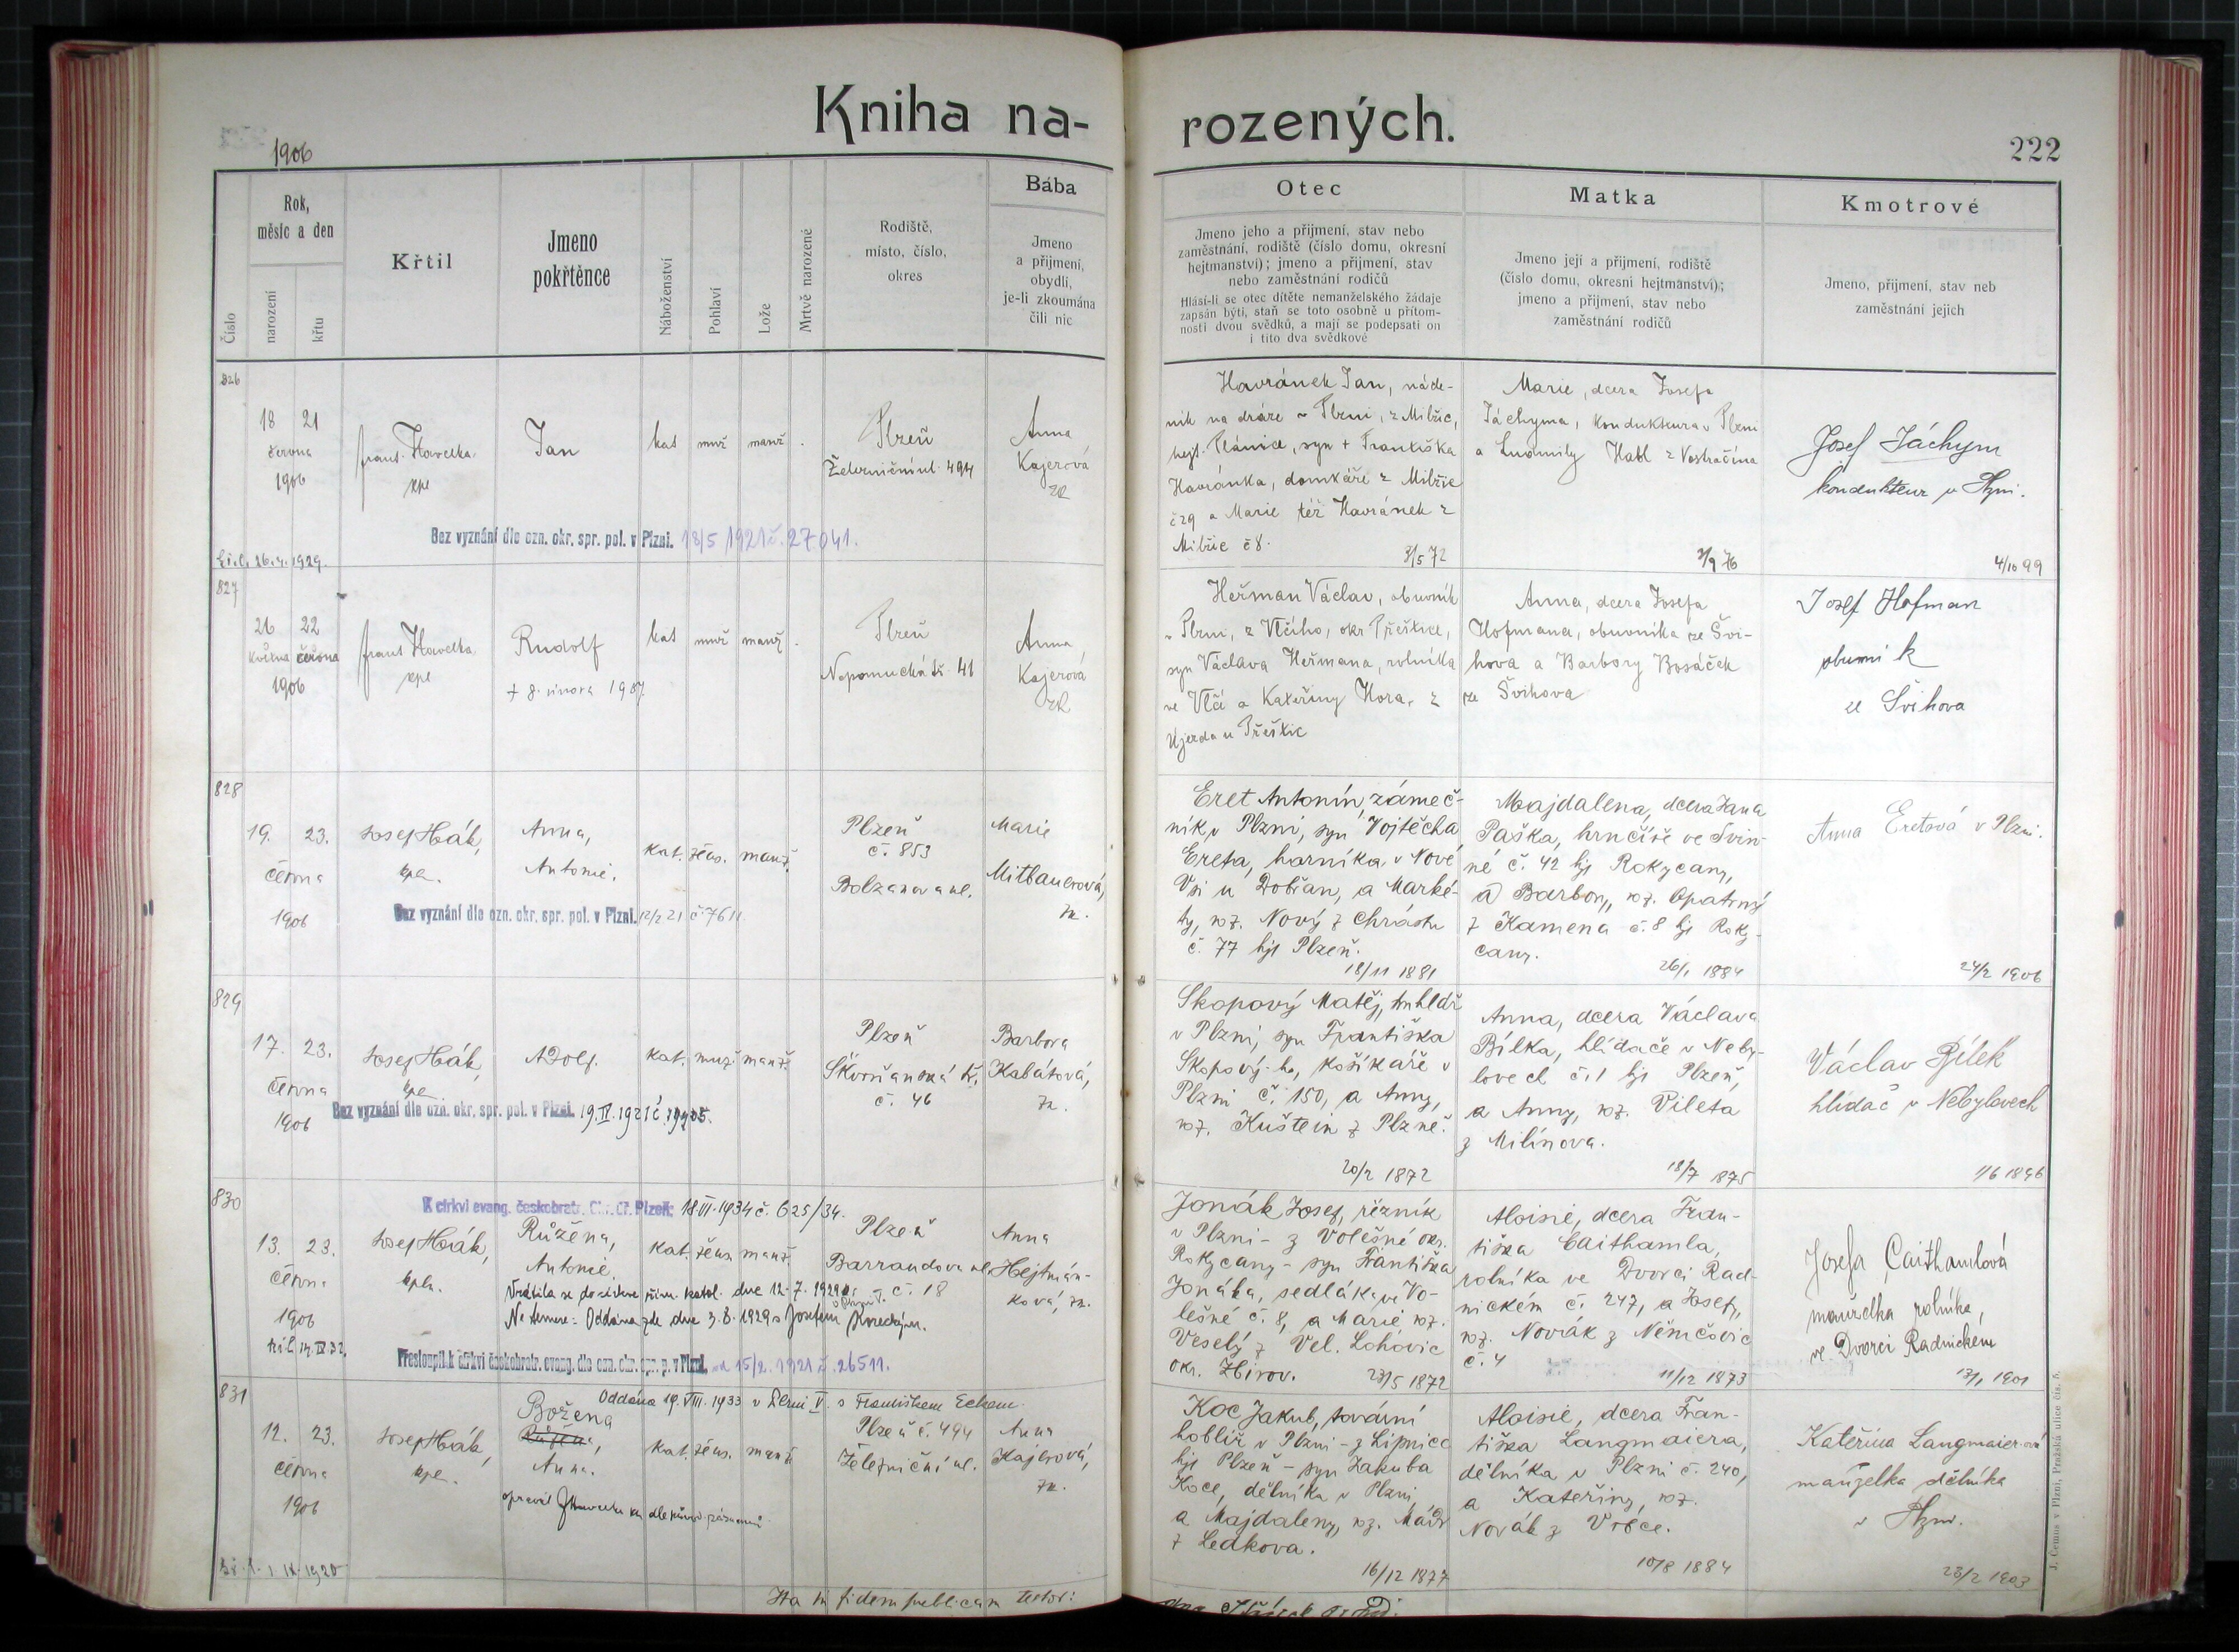 Kniha na-
rozených.
222
1906
Číslo
Rok,
měsíc a den
narození
křtu
Křtil
Jmeno
pokřtěnce
Náboženství
Pohlaví
Lože
Mrtvě narozené
Rodiště,
místo, číslo,
okres
Bába
Jmeno
a přijmení,
obydlí,
je-li zkoumána
čili nic
Otec
Jmeno jeho a přijmení, stav nebo
zaměstnání, rodiště (číslo domu, okresní
hejtmanství); jmeno a přijmení, stav
nebo zaměstnání rodičů
Hlásí-li se otec dítěte nemanželského žádaje
zapsán býti, staň se toto osobně u přítom-
nosti dvou svědků, a mají se podepsati on
i tito dva svědkové
Matka
Jmeno její a přijmení, rodiště
(číslo domu, okresní hejtmanství);
jmeno a přijmení, stav nebo
zaměstnání rodičů
Kmotrové
Jmeno, přijmení, stav neb
zaměstnání jejich
826
18 21
června
1906
Frant. Havelka
kpl
Jan
kat muž manž .
Plzeň
Železniční ul. 494
Anna
Kajerová
zk
Bez vyznání dle ozn. okr. spr. pol. v Plzni. 18/5 1921 č. 27041.
26.4.1929.
Havránek Jan, náde-
ník na dráze v Plzni, z Milžic,
hejt. Plánice, syn + Františka
Havránka, domkáře z Milžic
č 29 a Marie též Havránek z
Milžic č 8.
8/5 72
Marie, dcera Josefa
Jáchyma, kondukteura v Plzni
a Ludmily Habl z
2/9 76
Josef Jáchym
kondukteur v Plzni.
4/10 99
827
26 22
května června
1906
Frant Havelka
kpl
Rudolf
+ 8. února 1907
kat muž manž .
Plzeň
Nepomucká tř. 41
Anna
Kajerová
zk
Heřman Václav, obuvník
v Plzni, z Vlčího, okr Přeštice,
syn Václava Heřmana, rolníka
ve Vlčí a Kateřiny Hora, z
Újezda u Přeštic
Anna, dcera Josefa
Hofmana, obuvníka ze Švi-
hova a Barbory Bosáček
ze Švihova
Josef Hofman
obuvník
ze Švihova
828
19. 23.
června
1906
Josef Hák,
kpl.
Anna,
Antonie.
kat. žens. manž.
Plzeň
č. 853
Bolzanova ul.
Marie
Mitbauerová,
zk.
Bez vyznání dle ozn. okr. spr. pol. v Plzni. 12/2 21 č. 7611
Eret Antonín, zámeč-
ník v Plzni, syn Vojtěcha
Ereta, horníka v Nové
Vsi u Dobřan, a Marké-
ty, roz. Nový z Chrástu
č. 77 hjt Plzeň.
18/11 1881
Majdalena, dcera Jana
Paška, hrnčíře ve Svin-
né č. 42 hjt Rokycany,
a Barbory, roz. Opatrný
z Kamena č. 8 hjt Roky-
cany.
26/1 1884
Anna Eretová v Plzni.
24/2 1906
829
17. 23.
června
1906
Josef Hák,
kpl.
Adolf.
kat. muž. manž.
Plzeň
Škvrňanská tř.
č. 46
Barbora
Kabátová,
zk.
Bez vyznání dle ozn. okr. spr. pol. v Plzni. 19.II.1921 č.
Skopový Matěj, truhlář
v Plzni, syn Františka
Skopový-ho, košíkáře v
Plzni č. 150, a Anny,
roz. Kuštein z Plzně.
20/2 1872
Anna, dcera Václava
Bílka, hlídače v Neby-
lovech č. 1 hjt Plzeň,
a Anny, roz. Pileta
z Milínova.
18/7 1875
Václav Bílek
hlídač v Nebylovech
1/6 1896
830
K církvi evang. českobratr. Plzeň; 18.VI.1934 č. 625/34.
13. 23.
června
1906
14.IV.32.
Josef Hák,
kpln.
Růžena,
Antonie.
kat. žens. manž.
Plzeň
Barrandova ul.
č. 18
Anna
Hejtmán-
ková, zk.
Vrátila se do církve řím. katol. dne 12.7.1929
Oddána zde dne 3.8.1929 s Josefem
Přestoupil k církvi českobratr. evang. dle ozn. okr. spr. p. v Plzni. od 15/2. 1921 č. 26511.
Jonák Josef, řezník
v Plzni - z Volešné okr.
Rokycany - syn Františka
Jonáka, sedláka ve Vo-
lešné č. 8, a Marie roz.
Veselý z Vel. Lohovic
okr. Zbirov.
23/5 1872
Aloisie, dcera Fran-
tiška Caithamla,
rolníka ve Dvorci Rad-
nickém č. 247, a Josefy,
roz. Novák z Němčovic
č. 4
11/12 1873
Josefa Caithamlová
manželka rolníka,
ve Dvorci Radnickém
13/1 1901
831
Oddána 19.VIII.1933 v Plzni V. s Františkem Eckem.
12. 23.
června
1906
Josef Hák,
kpl.
Božena
Růžena,
Anna.
kat. žens. manž
Plzeň č. 494
Železniční ul.
Anna
Kajerová,
zk.
IX.1920
Koc Jakub, tovární
hoblíř v Plzni - z Lipnice
hjt Plzeň - syn Jakuba
Koce, dělníka v Plzni,
a Majdaleny, roz. Mádr
z Ledkova.
16/12 1877
Aloisie, dcera Fran-
tiška Langmaiera,
dělníka v Plzni č. 240,
a Kateřiny, roz.
Novák z Vrbce.
10/8 1884
Kateřina Langmaierová
manželka dělníka
v Plzni.
23/2 1903
Ita in fidem publicam testor:
J. Černus v Plzni, Pražská ulice čís. 5.